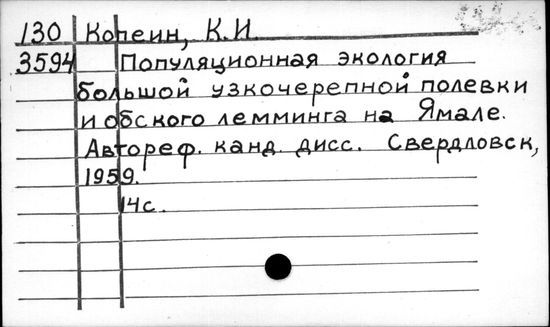 130 Копеин, К.И.
3594 Популяционная экология
большой узкочерепной полевки
и обского лемминга на Ямале.
Автореф. канд. дисс. Свердловск,
1959.
14с.